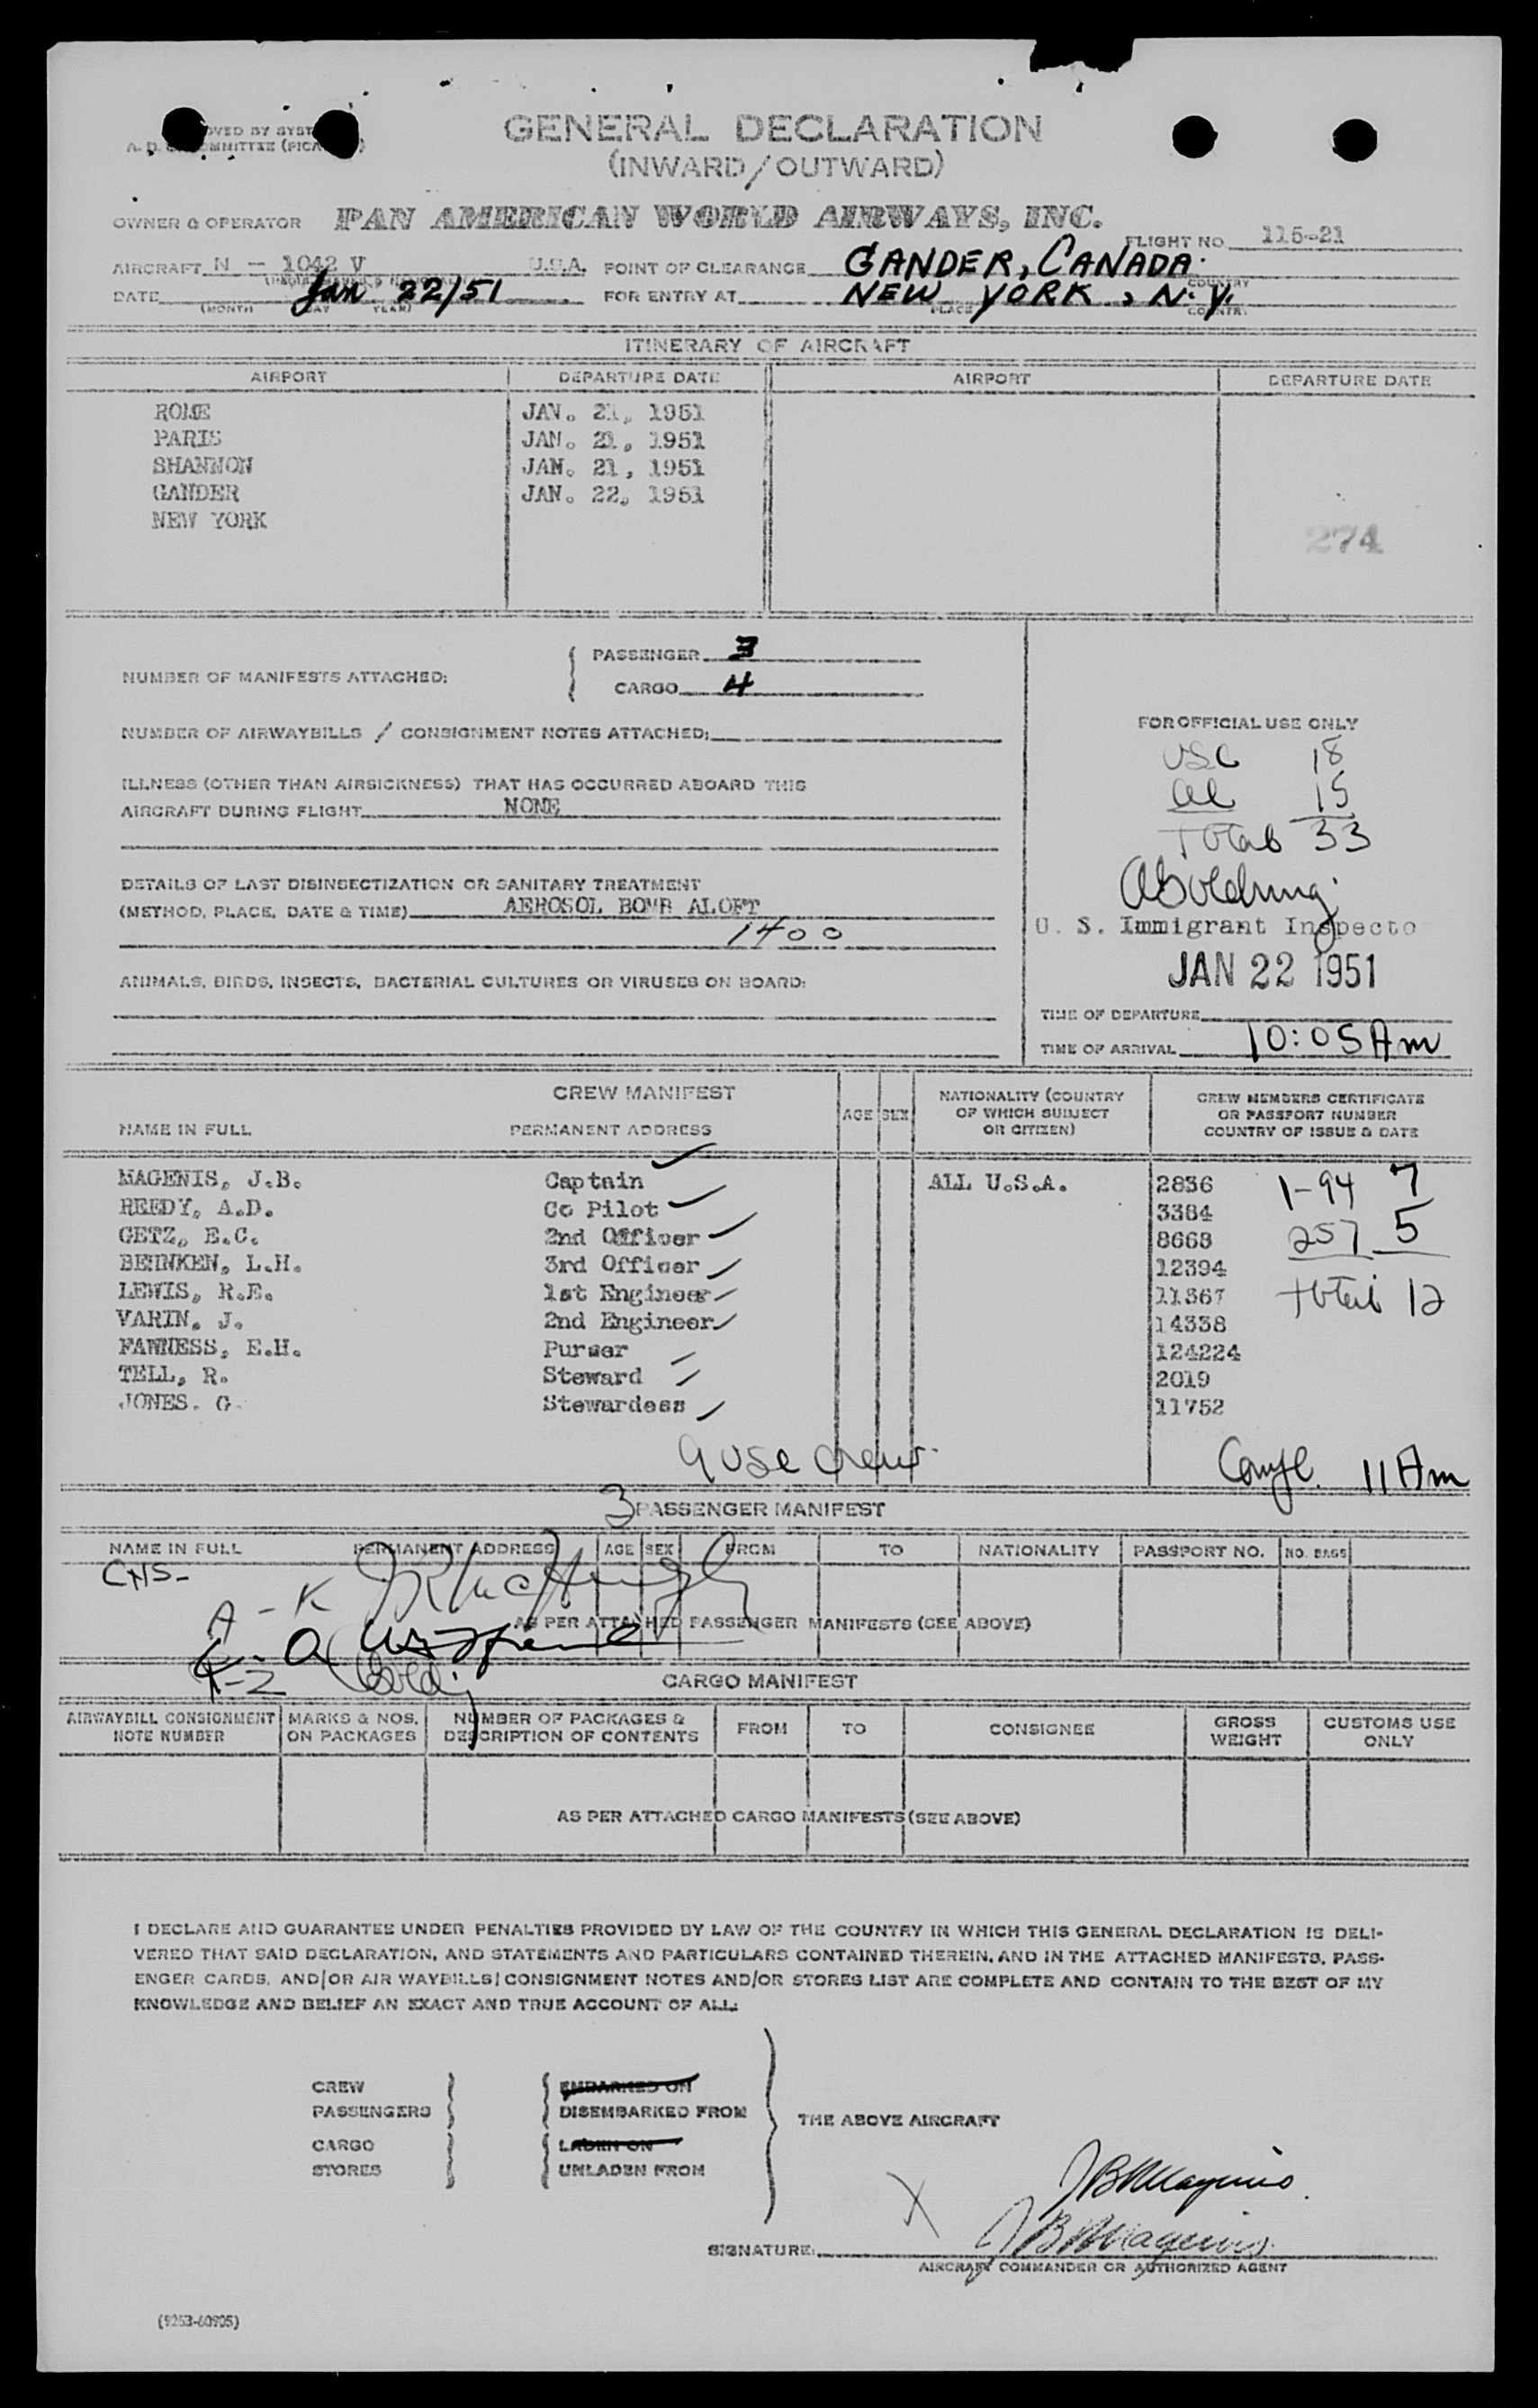 GENERAL DECLARATION
(INWARD/OUTWARD)
OWNER & OPERATOR PAN AMERICAN WORLD AIRWAYS, INC.
FLIGHT NO. 115-21
AIRCRAFT N - 1042 V U.S.A. POINT OF CLEARANCE GANDER, CANADA
COUNTRY
DATE Jan 22/51 FOR ENTRY AT NEW YORK, N.Y.
(MONTH DAY YEAR) PLACE COUNTRY
ITINERARY OF AIRCRAFT
AIRPORT DEPARTURE DATE AIRPORT DEPARTURE DATE
ROME JAN. 21, 1951
PARIS JAN. 21, 1951
SHANNON JAN. 21, 1951
GANDER JAN. 22, 1951
NEW YORK
274
NUMBER OF MANIFESTS ATTACHED: PASSENGER 3
CARGO 4
NUMBER OF AIRWAYBILLS / CONSIGNMENT NOTES ATTACHED:
FOR OFFICIAL USE ONLY
USC 18
al 15
Total 33
ILLNESS (OTHER THAN AIRSICKNESS) THAT HAS OCCURRED ABOARD THIS
AIRCRAFT DURING FLIGHT NONE
DETAILS OF LAST DISINSECTIZATION OR SANITARY TREATMENT
(METHOD, PLACE, DATE & TIME) AEROSOL BOMB ALOFT
1400
U. S. Immigrant Inspecto
JAN 22 1951
ANIMALS, BIRDS, INSECTS, BACTERIAL CULTURES OR VIRUSES ON BOARD:
TIME OF DEPARTURE
TIME OF ARRIVAL 10:05 Am
CREW MANIFEST
NAME IN FULL PERMANENT ADDRESS AGE SEX NATIONALITY (COUNTRY OF WHICH SUBJECT OR CITIZEN) CREW MEMBERS CERTIFICATE OR PASSPORT NUMBER COUNTRY OF ISSUE & DATE
MAGENIS, J.B. Captain ALL U.S.A. 2836 1-94 7
REEDY, A.D. Co Pilot 3384
GETZ, E.C. 2nd Officer 8668 257 5
BEHNKEN, L.H. 3rd Officer 12394
LEWIS, R.E. 1st Engineer 11367 total 12
VARIN, J. 2nd Engineer 14338
FANNESS, E.H. Purser 124224
TELL, R. Steward 2019
JONES. G. Stewardess 11752
9 USC Crew
Compl. 11 Am
3 PASSENGER MANIFEST
NAME IN FULL PERMANENT ADDRESS AGE SEX FROM TO NATIONALITY PASSPORT NO. NO. BAGS
CNS-
A - K
AS PER ATTACHED PASSENGER MANIFESTS (SEE ABOVE)
CARGO MANIFEST
AIRWAYBILL CONSIGNMENT NOTE NUMBER MARKS & NOS. ON PACKAGES NUMBER OF PACKAGES & DESCRIPTION OF CONTENTS FROM TO CONSIGNEE GROSS WEIGHT CUSTOMS USE ONLY
AS PER ATTACHED CARGO MANIFESTS (SEE ABOVE)
I DECLARE AND GUARANTEE UNDER PENALTIES PROVIDED BY LAW OF THE COUNTRY IN WHICH THIS GENERAL DECLARATION IS DELI-
VERED THAT SAID DECLARATION, AND STATEMENTS AND PARTICULARS CONTAINED THEREIN, AND IN THE ATTACHED MANIFESTS, PASS-
ENGER CARDS, AND/OR AIR WAYBILLS/CONSIGNMENT NOTES AND/OR STORES LIST ARE COMPLETE AND CONTAIN TO THE BEST OF MY
KNOWLEDGE AND BELIEF AN EXACT AND TRUE ACCOUNT OF ALL:
CREW EMBARKED ON
PASSENGERS DISEMBARKED FROM
THE ABOVE AIRCRAFT
CARGO LADEN ON
STORES UNLADEN FROM
JBMagenis
X
SIGNATURE: JBMagenis
AIRCRAFT COMMANDER OR AUTHORIZED AGENT
(9253-60905)